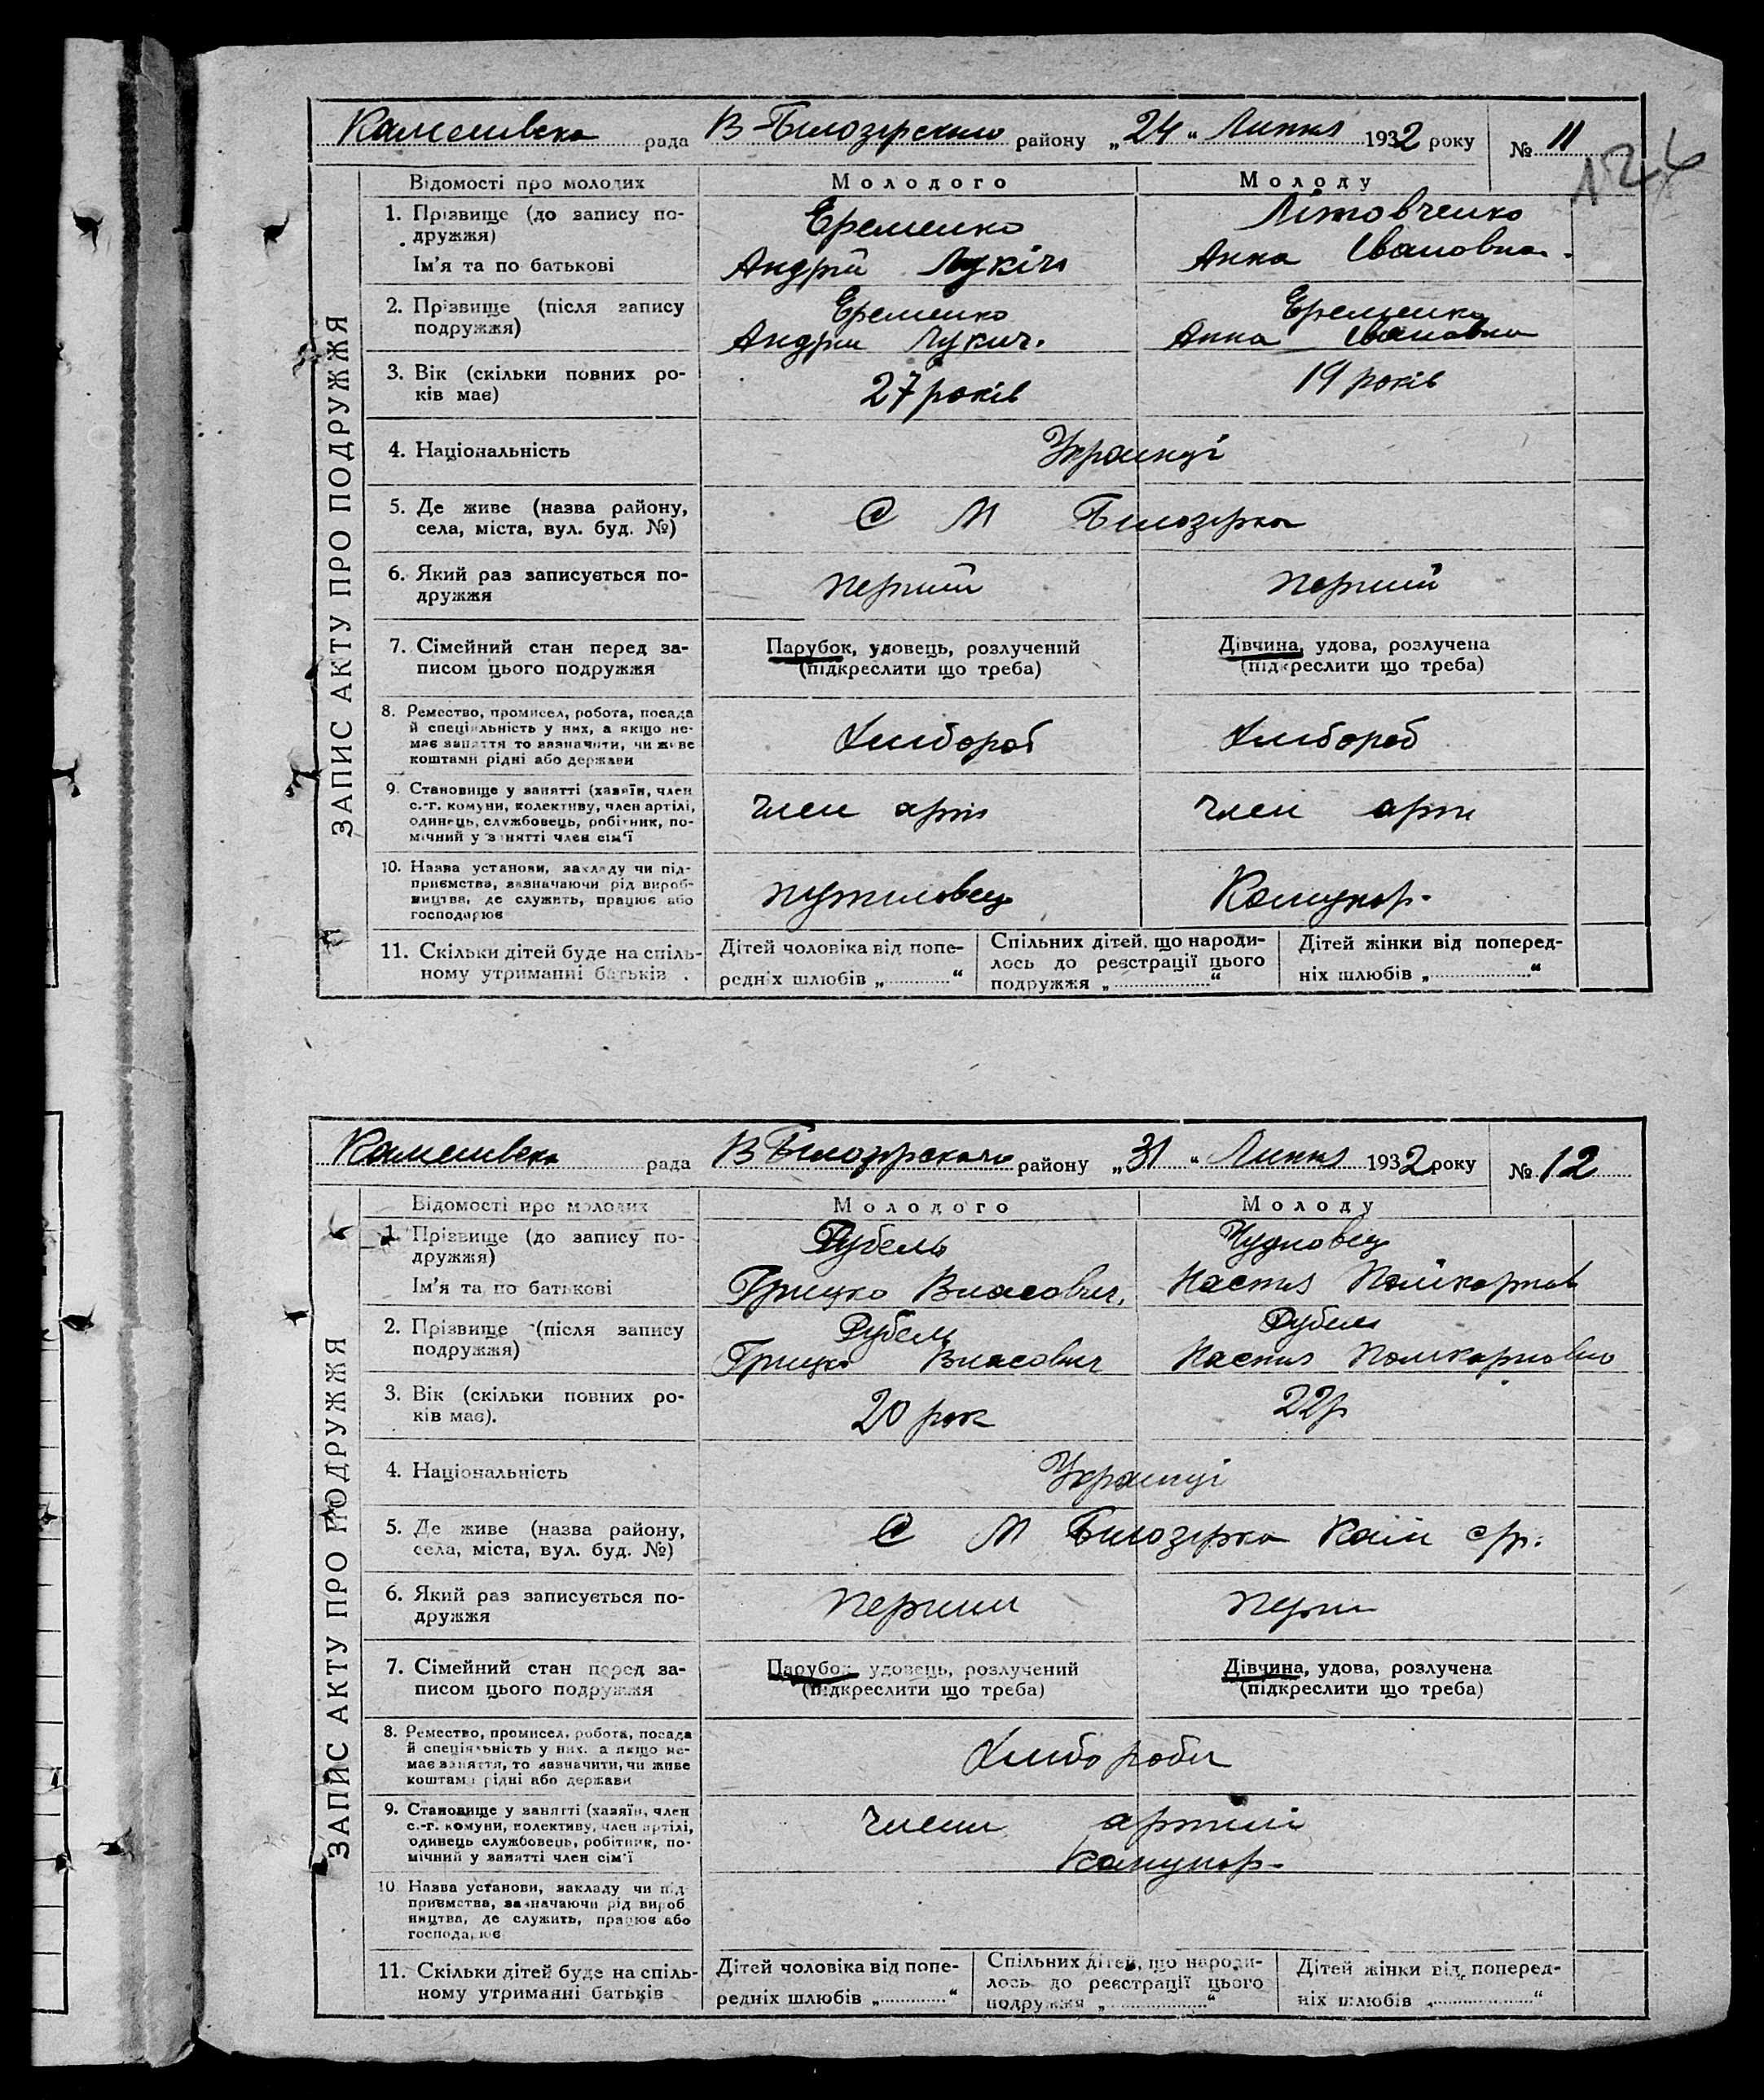 Камешвська рада В-Білозірського району „24“ Липня 1932 року № 11
126
ЗАПИС АКТУ ПРО ПОДРУЖЖЯ
Відомості про молодих Молодого Молоду
1. Прізвище (до запису по- Еременко Літовченко
дружжя)
Ім'я та по батькові Андрій Лукіч Анна Івановна.
2. Прізвище (після запису Еременко Еременко
подружжя) Андрій Лукич. Анна Івановна
3. Вік (скільки повних ро- 27 років 19 років
ків має)
4. Національність Украинці
5. Де живе (назва району, С М Білозірка
села, міста, вул. буд. №)
6. Який раз записується по- перший перший
дружжя
7. Сімейний стан перед за- Парубок, удовець, розлучений Дівчина, удова, розлучена
писом цього подружжя (підкреслити що треба) (підкреслити що треба)
8. Ремество, промисел, робота, посада
й спеціяльність у них, а якщо не- Хлибороб Хлибороб
має заняття то зазначити, чи живе
коштами рідні або держави
9. Становище у занятті (хазяїн, член
с.-г. комуни, колективу, член артілі, член арті член арти
одинець, службовець, робітник, по-
мічний у занятті член сім'ї
10. Назва установи, закладу чи під-
приємства, зазначаючи рід вироб- путиловець Комунар.
ництва, де служить, працює або
господарює
11. Скільки дітей буде на спіль- Дітей чоловіка від попе- Спільних дітей, що народи- Дітей жінки від поперед-
ному утриманні батьків . редніх шлюбів „ “ лось до реєстрації цього ніх шлюбів „ “
подружжя „ “
Камешвська рада В Білозірського району „31“ Липня 1932 року № 12
ЗАПИС АКТУ ПРО ПОДРУЖЖЯ
Відомості про молодих Молодого Молоду
1. Прізвище (до запису по- Рубель Чудновец
дружжя)
Ім'я та по батькові Грицко Власович, Настя Полікарпов
2. Прізвище (після запису Рубель Рубель
подружжя) Грицко Власович Настя Поликарповно
3. Вік (скільки повних ро- 20 рок 22р
ків має).
4. Національність Украинці
5. Де живе (назва району, С М Білозірка Кам с/р.
села, міста, вул. буд. №)
6. Який раз записується по- перший перш
дружжя
7. Сімейний стан перед за- Парубок удовець, розлучений Дівчина, удова, розлучена
писом цього подружжя (підкреслити що треба) (підкреслити що треба)
8. Ремество, промисел, робота, посада
й спеціяльність у них, а якщо не- Хлибороби
має заняття, то зазначити, чи живе
коштами рідні або держави
9. Становище у занятті (хазяїн, член
с.-г. комуни, колективу, член артілі, члени артілі
одинець службовець, робітник, по-
мічний у занятті член сім'ї Комунар.
10 Назва установи, закладу чи під-
приємства, зазначаючи рід вироб
ництва, де служить, працює або
господарює
11. Скільки дітей буде на спіль- Дітей чоловіка від попе- Спільних дітей, що народи- Дітей жінки від поперед-
ному утриманні батьків редніх шлюбів „ “ лось до реєстрації цього ніх шлюбів „ “
подружжя „ “